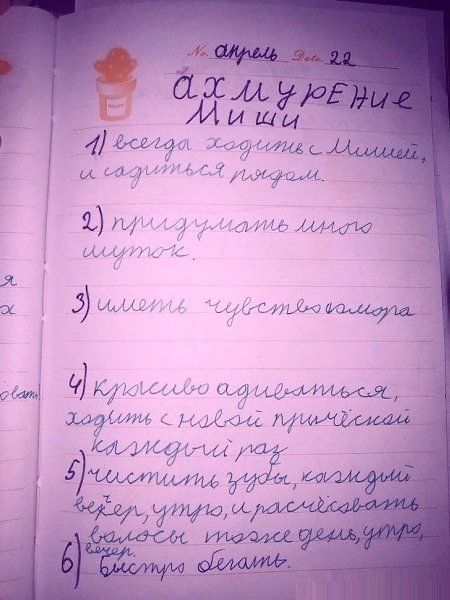 No. апрель Date. 22
ахмурение
Миши
1) всегда ходить с Мишей,
и садиться рядом.
2) придумать много
шуток.
3) иметь чувство юмора
4) красиво адиваться,
ходить с новой причёской
каждый раз
5) чистить зубы, каждый
вечер, утро, и расчёсовать
волосы тоже день, утро,
вечер.
6) Быстро бегать.
я
х
овать